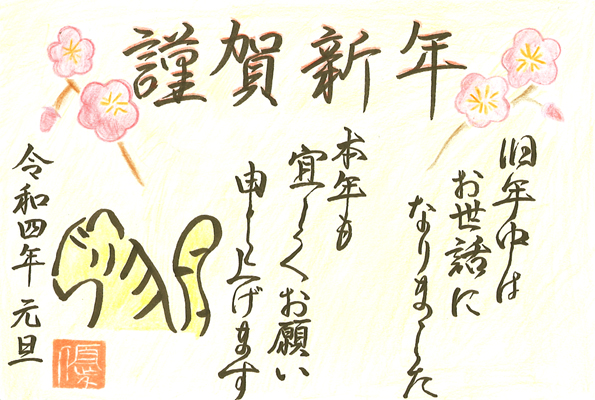 謹賀新年
旧年中は
お世話に
なりました
本年も
宜しくお願い
申し上げます
令和四年 元旦